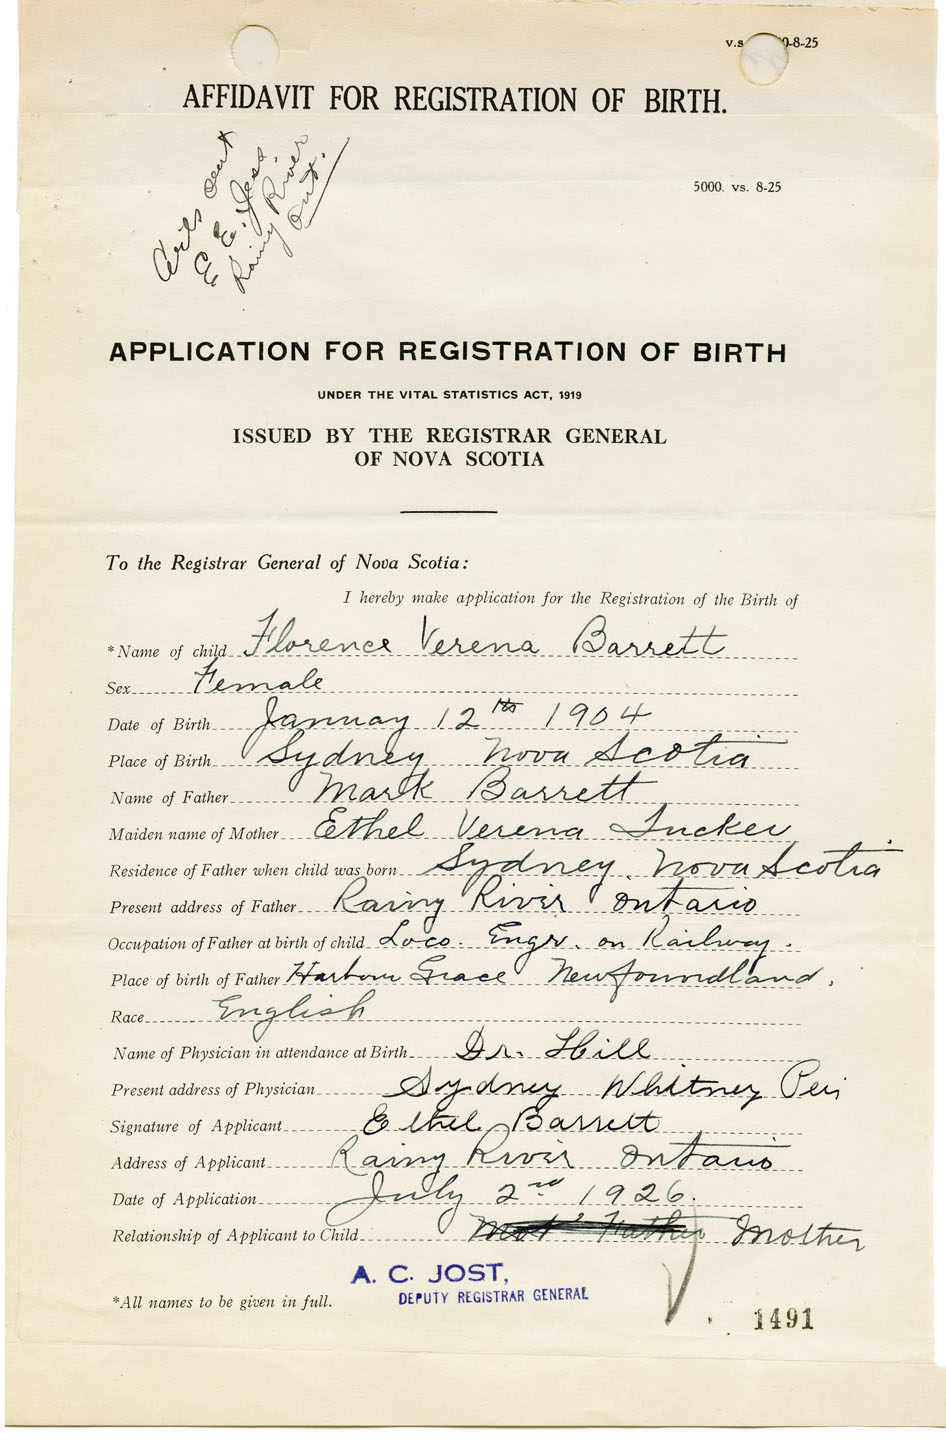 v.s 0-8-25
AFFIDAVIT FOR REGISTRATION OF BIRTH.
5000. vs. 8-25
sent
E E.
Rainy River
Ont.
APPLICATION FOR REGISTRATION OF BIRTH
UNDER THE VITAL STATISTICS ACT, 1919
ISSUED BY THE REGISTRAR GENERAL
OF NOVA SCOTIA
To the Registrar General of Nova Scotia:
I hereby make application for the Registration of the Birth of
*Name of child Florence Verena Barrett
Sex Female
Date of Birth Januay 12th 1904
Place of Birth Sydney Nova Scotia
Name of Father Mark Barrett
Maiden name of Mother Ethel Verena Tucker
Residence of Father when child was born Sydney, Nova Scotia
Present address of Father Rainy River Ontario
Occupation of Father at birth of child Loco. Engr. on Railway.
Place of birth of Father Harbour Grace Newfoundland,
Race English
Name of Physician in attendance at Birth Dr. Hill
Present address of Physician Sydney Whitney Pei
Signature of Applicant Ethel Barrett
Address of Applicant Rainy River Ontario
Date of Application July 2nd 1926.
Relationship of Applicant to Child Father Mother
A. C. JOST,
DEPUTY REGISTRAR GENERAL
*All names to be given in full.
1491